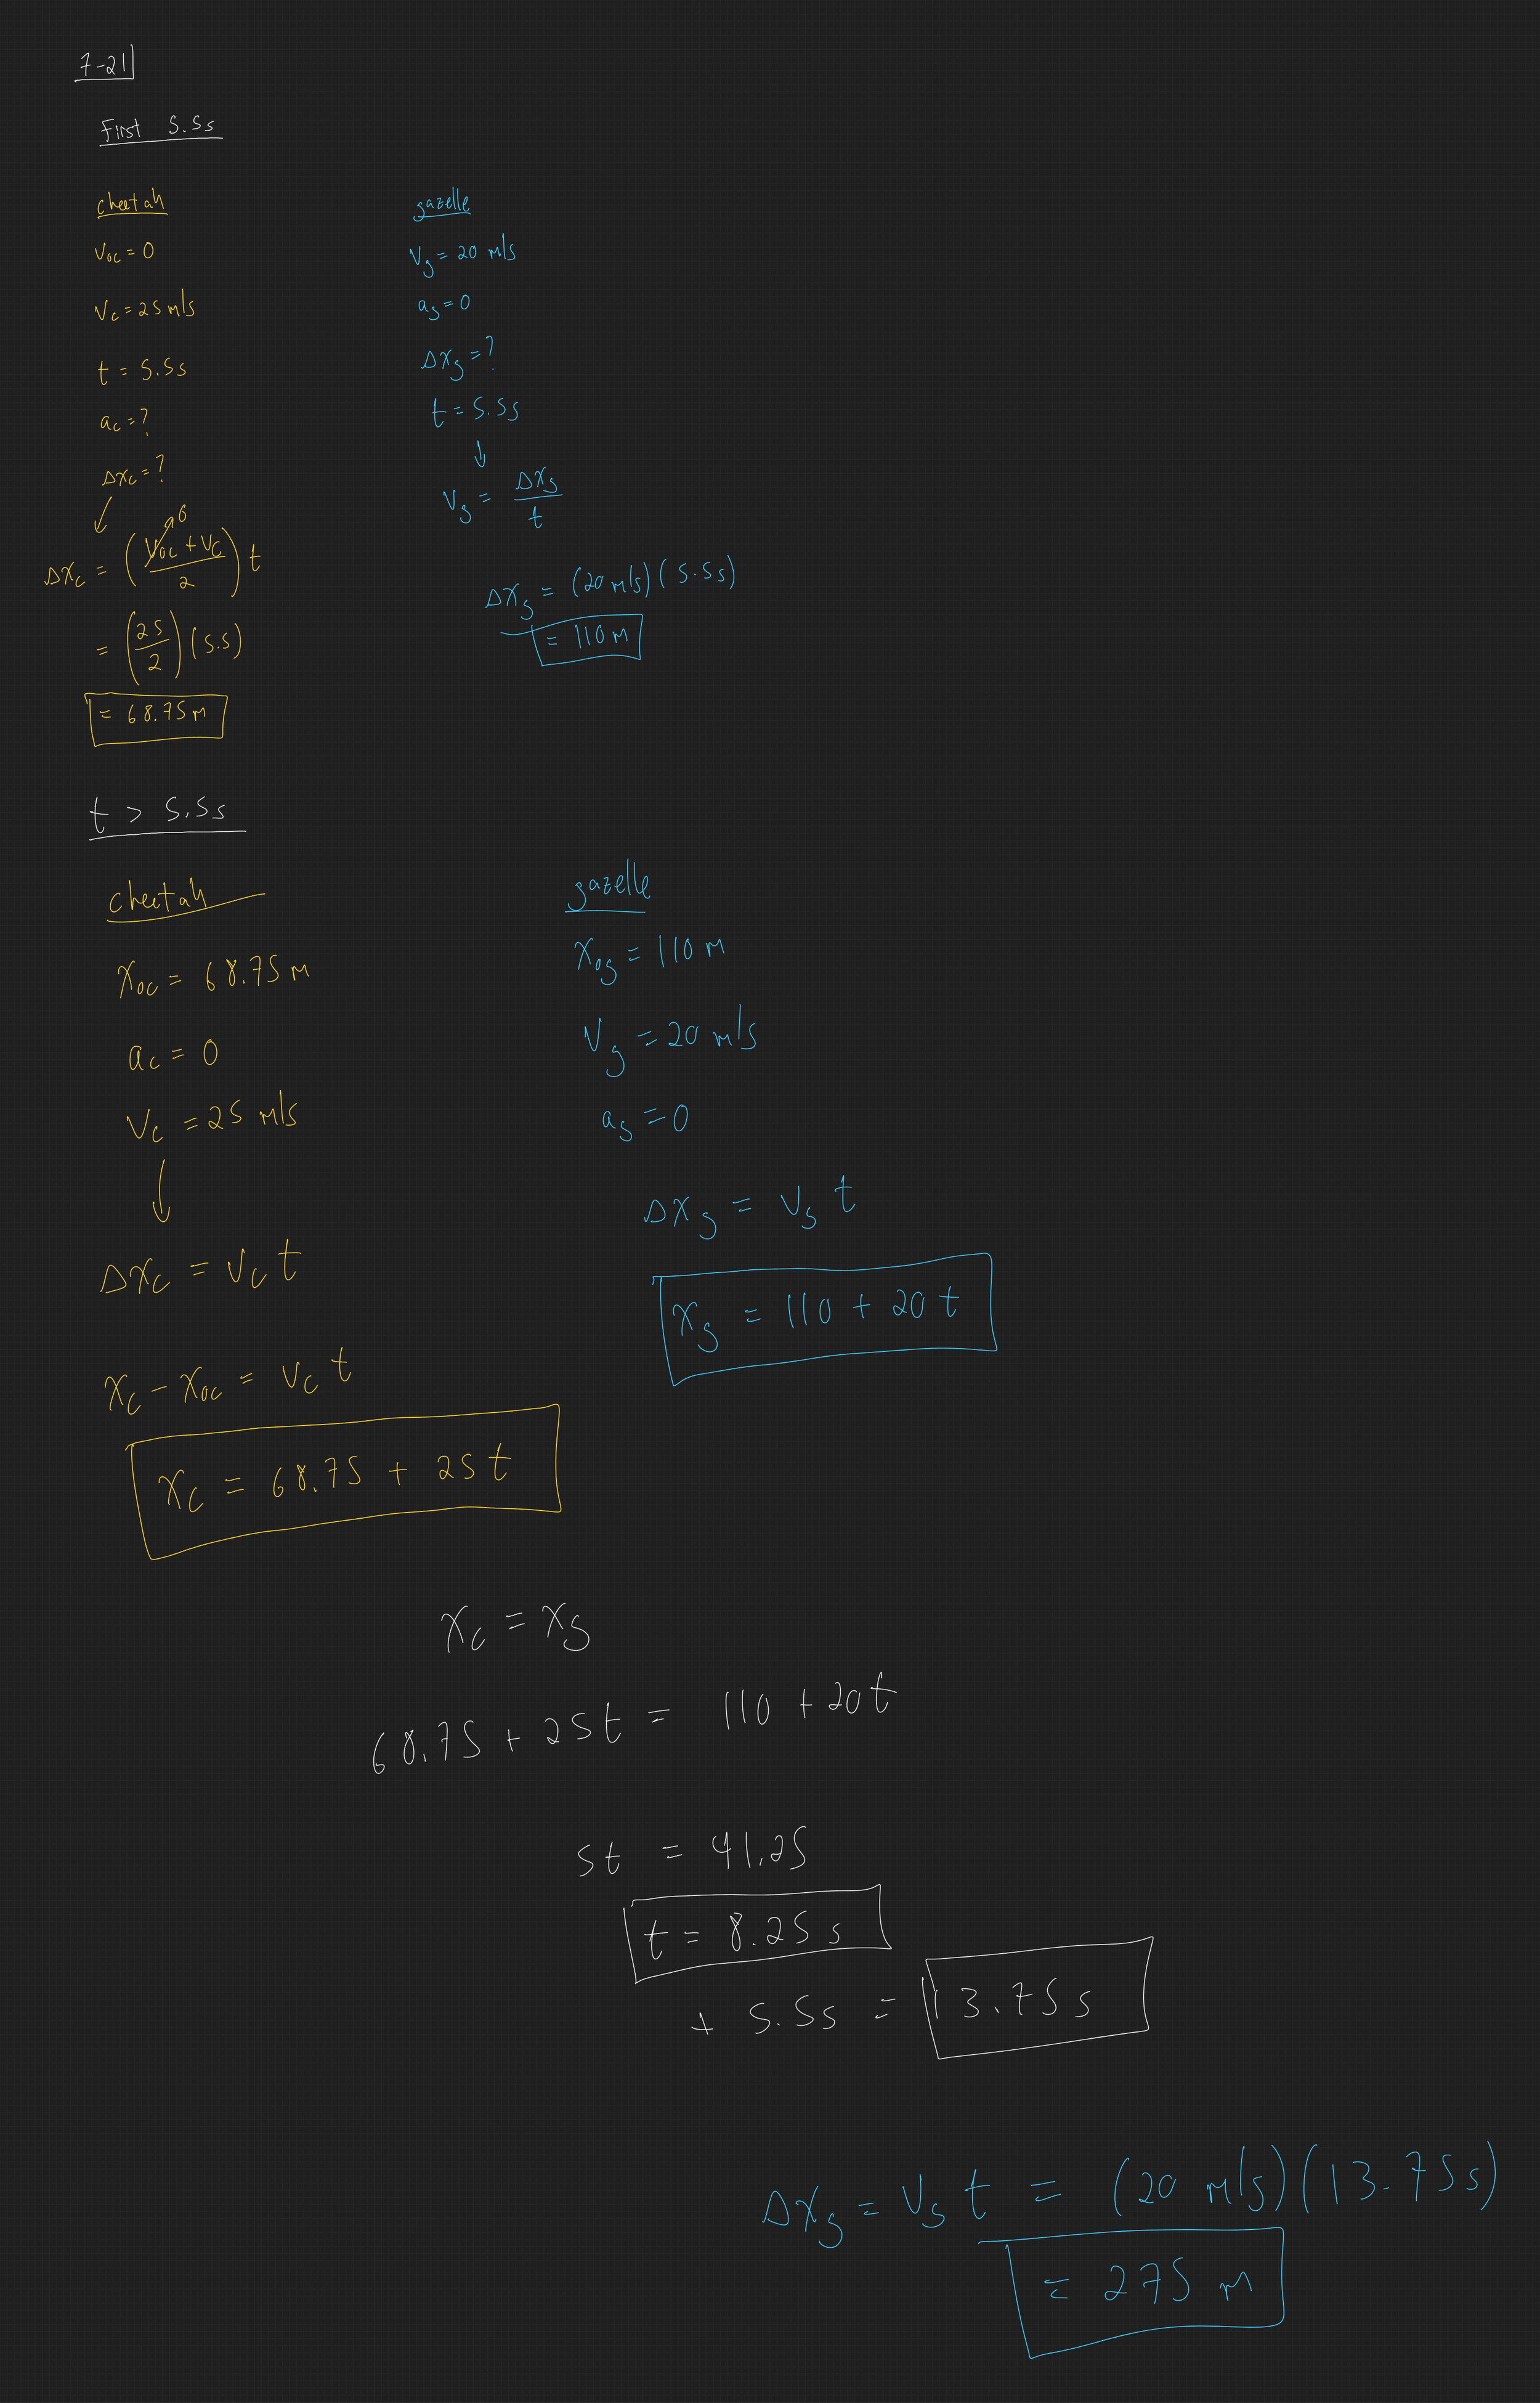 7-21
First 5.5s
cheetah
V₀c = 0
Vc = 25 m/s
t = 5.5s
ac = ?
Δxc = ?
↓
Δxc = ((V₀c + Vc)/2) t
→0
= (25/2)(5.5)
= 68.75 m
gazelle
Vg = 20 m/s
ag = 0
Δxg = ?
t = 5.5s
↓
Vg = Δxg/t
Δxg = (20 m/s)(5.5s)
= 110 m
t > 5.5s
cheetah
x₀c = 68.75 m
ac = 0
Vc = 25 m/s
↓
Δxc = Vc t
xc - x₀c = Vc t
xc = 68.75 + 25 t
gazelle
x₀g = 110 m
Vg = 20 m/s
ag = 0
Δxg = Vg t
xg = 110 + 20 t
xc = xg
68.75 + 25t = 110 + 20t
5t = 41.25
t = 8.25 s
+ 5.5s = 13.75 s
Δxg = Vg t = (20 m/s)(13.75s)
= 275 m